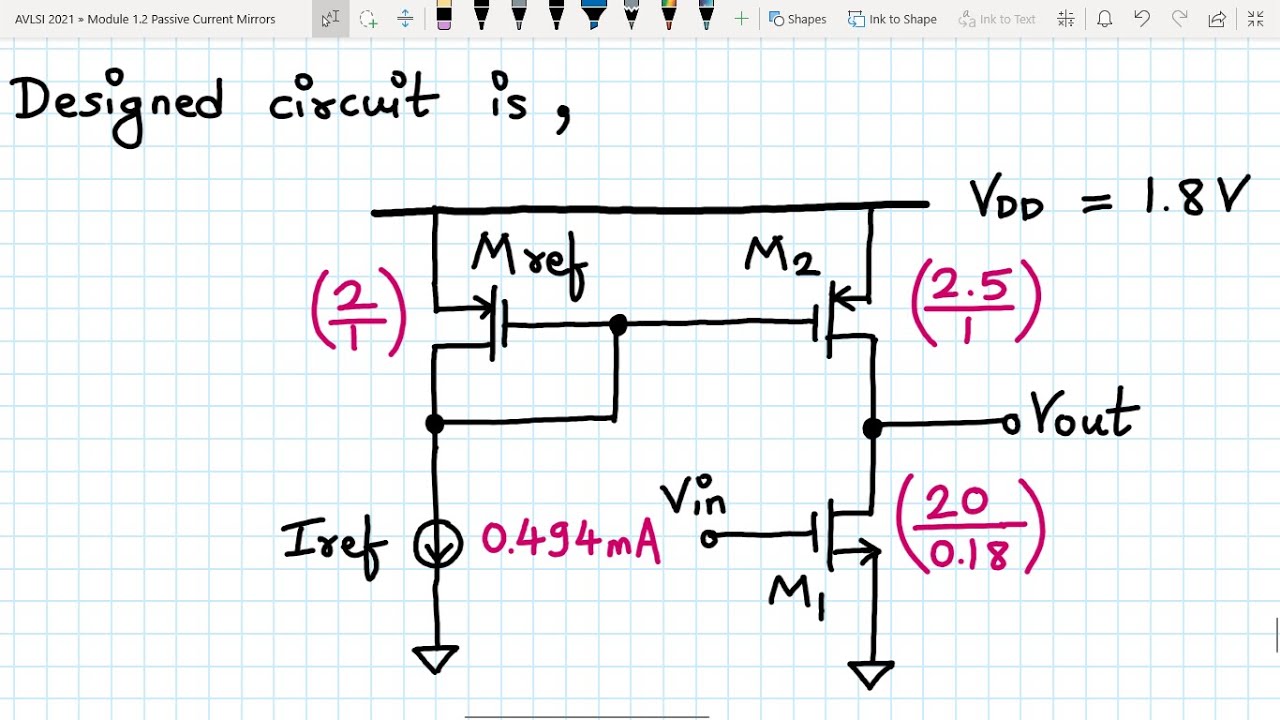 AVLSI 2021 » Module 1.2 Passive Current Mirrors
Shapes
Ink to Shape
Ink to Text
Designed circuit is,
VDD = 1.8V
Mref
M2
(2/1)
(2.5/1)
Vout
Vin
(20/0.18)
Iref
0.494mA
M1